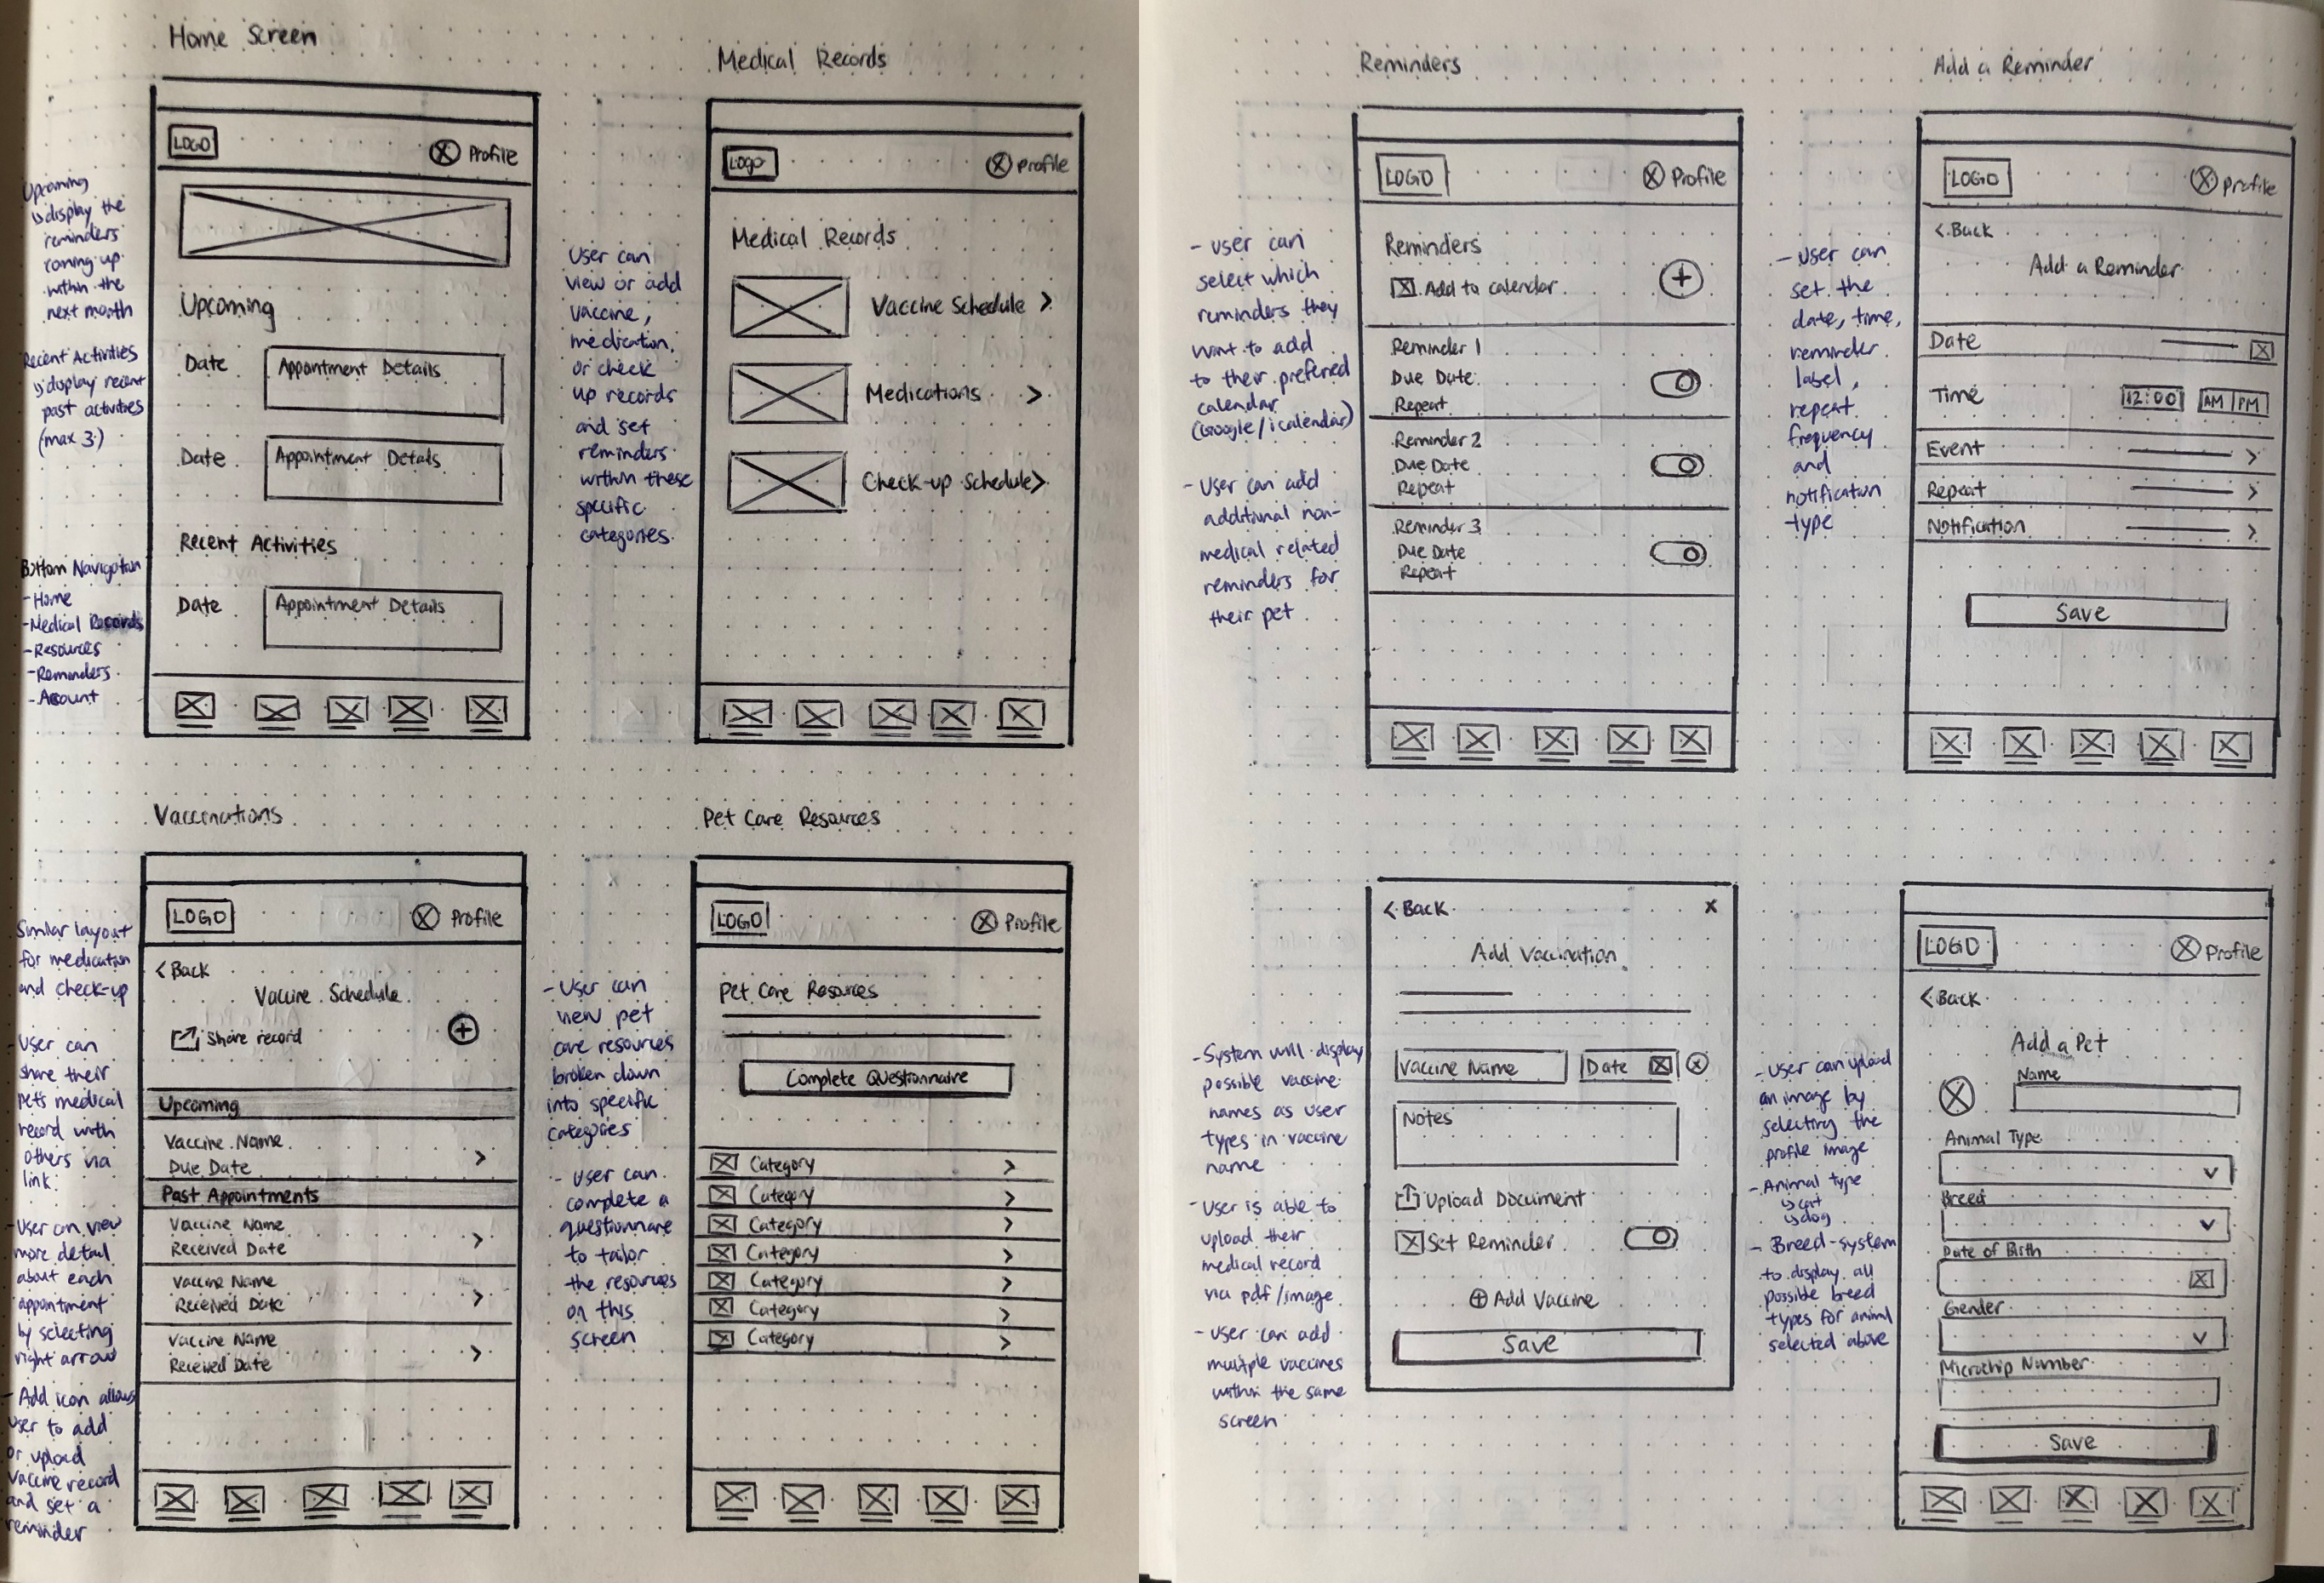 Home Screen
LOGO
Profile
Upcoming
Date
Appointment Details
Date
Appointment Details
Recent Activities
Date
Appointment Details
Upcoming
↳ display the
reminders
coming up
within the
next month
Recent Activities
↳ display recent
past activities
(max 3)
Bottom Navigation
- Home
- Medical Records
- Resources
- Reminders
- Account
Medical Records
Logo
Profile
Medical Records
Vaccine Schedule >
Medications >
Check-up Schedule >
User can
view or add
vaccine,
medication,
or check
up records
and set
reminders
within these
specific
categories.
Vaccinations
LOGO
Profile
< Back
Vaccine Schedule
Share record
Upcoming
Vaccine Name
Due Date
>
Past Appointments
Vaccine Name
Received Date
>
Vaccine Name
Received Date
>
Vaccine Name
Received Date
>
Similar layout
for medication
and check-up
- User can
share their
pet's medical
record with
others via
link.
- User can view
more detail
about each
appointment
by selecting
right arrow
- Add icon allows
user to add
or upload
vaccine record
and set a
reminder
Pet Care Resources
LOGO
Profile
Pet Care Resources
Complete Questionnaire
Category >
Category >
Category >
Category >
Category >
Category >
Category >
- User can
view pet
care resources
broken down
into specific
categories
- User can
complete a
questionnare
to tailor
the resources
on this
screen
Reminders
LOGO
Profile
Reminders
Add to calendar
Reminder 1
Due Date
Repeat
Reminder 2
Due Date
Repeat
Reminder 3
Due Date
Repeat
- User can
select which
reminders they
want to add
to their preferred
calendar
(Google/icalendar)
- User can add
additional non-
medical related
reminders for
their pet
Add a Reminder
LOGO
Profile
< Back
Add a Reminder
Date
Time
12:00
AM PM
Event >
Repeat >
Notification >
Save
- User can
set the
date, time,
reminder
label,
repeat
frequency
and
notification
type
< Back
x
Add Vaccination
Vaccine Name
Date
Notes
Upload Document
Set Reminder
Add Vaccine
Save
- System will display
possible vaccine
names as user
types in vaccine
name
- User is able to
upload their
medical record
via pdf/image
- User can add
multiple vaccines
within the same
screen
LOGO
Profile
< Back
Add a Pet
Name
Animal Type
Breed
Date of Birth
Gender
Microchip Number
Save
- User can upload
an image by
selecting the
profile image
- Animal type
↳ cat
↳ dog
- Breed - system
to display all
possible breed
types for animal
selected above